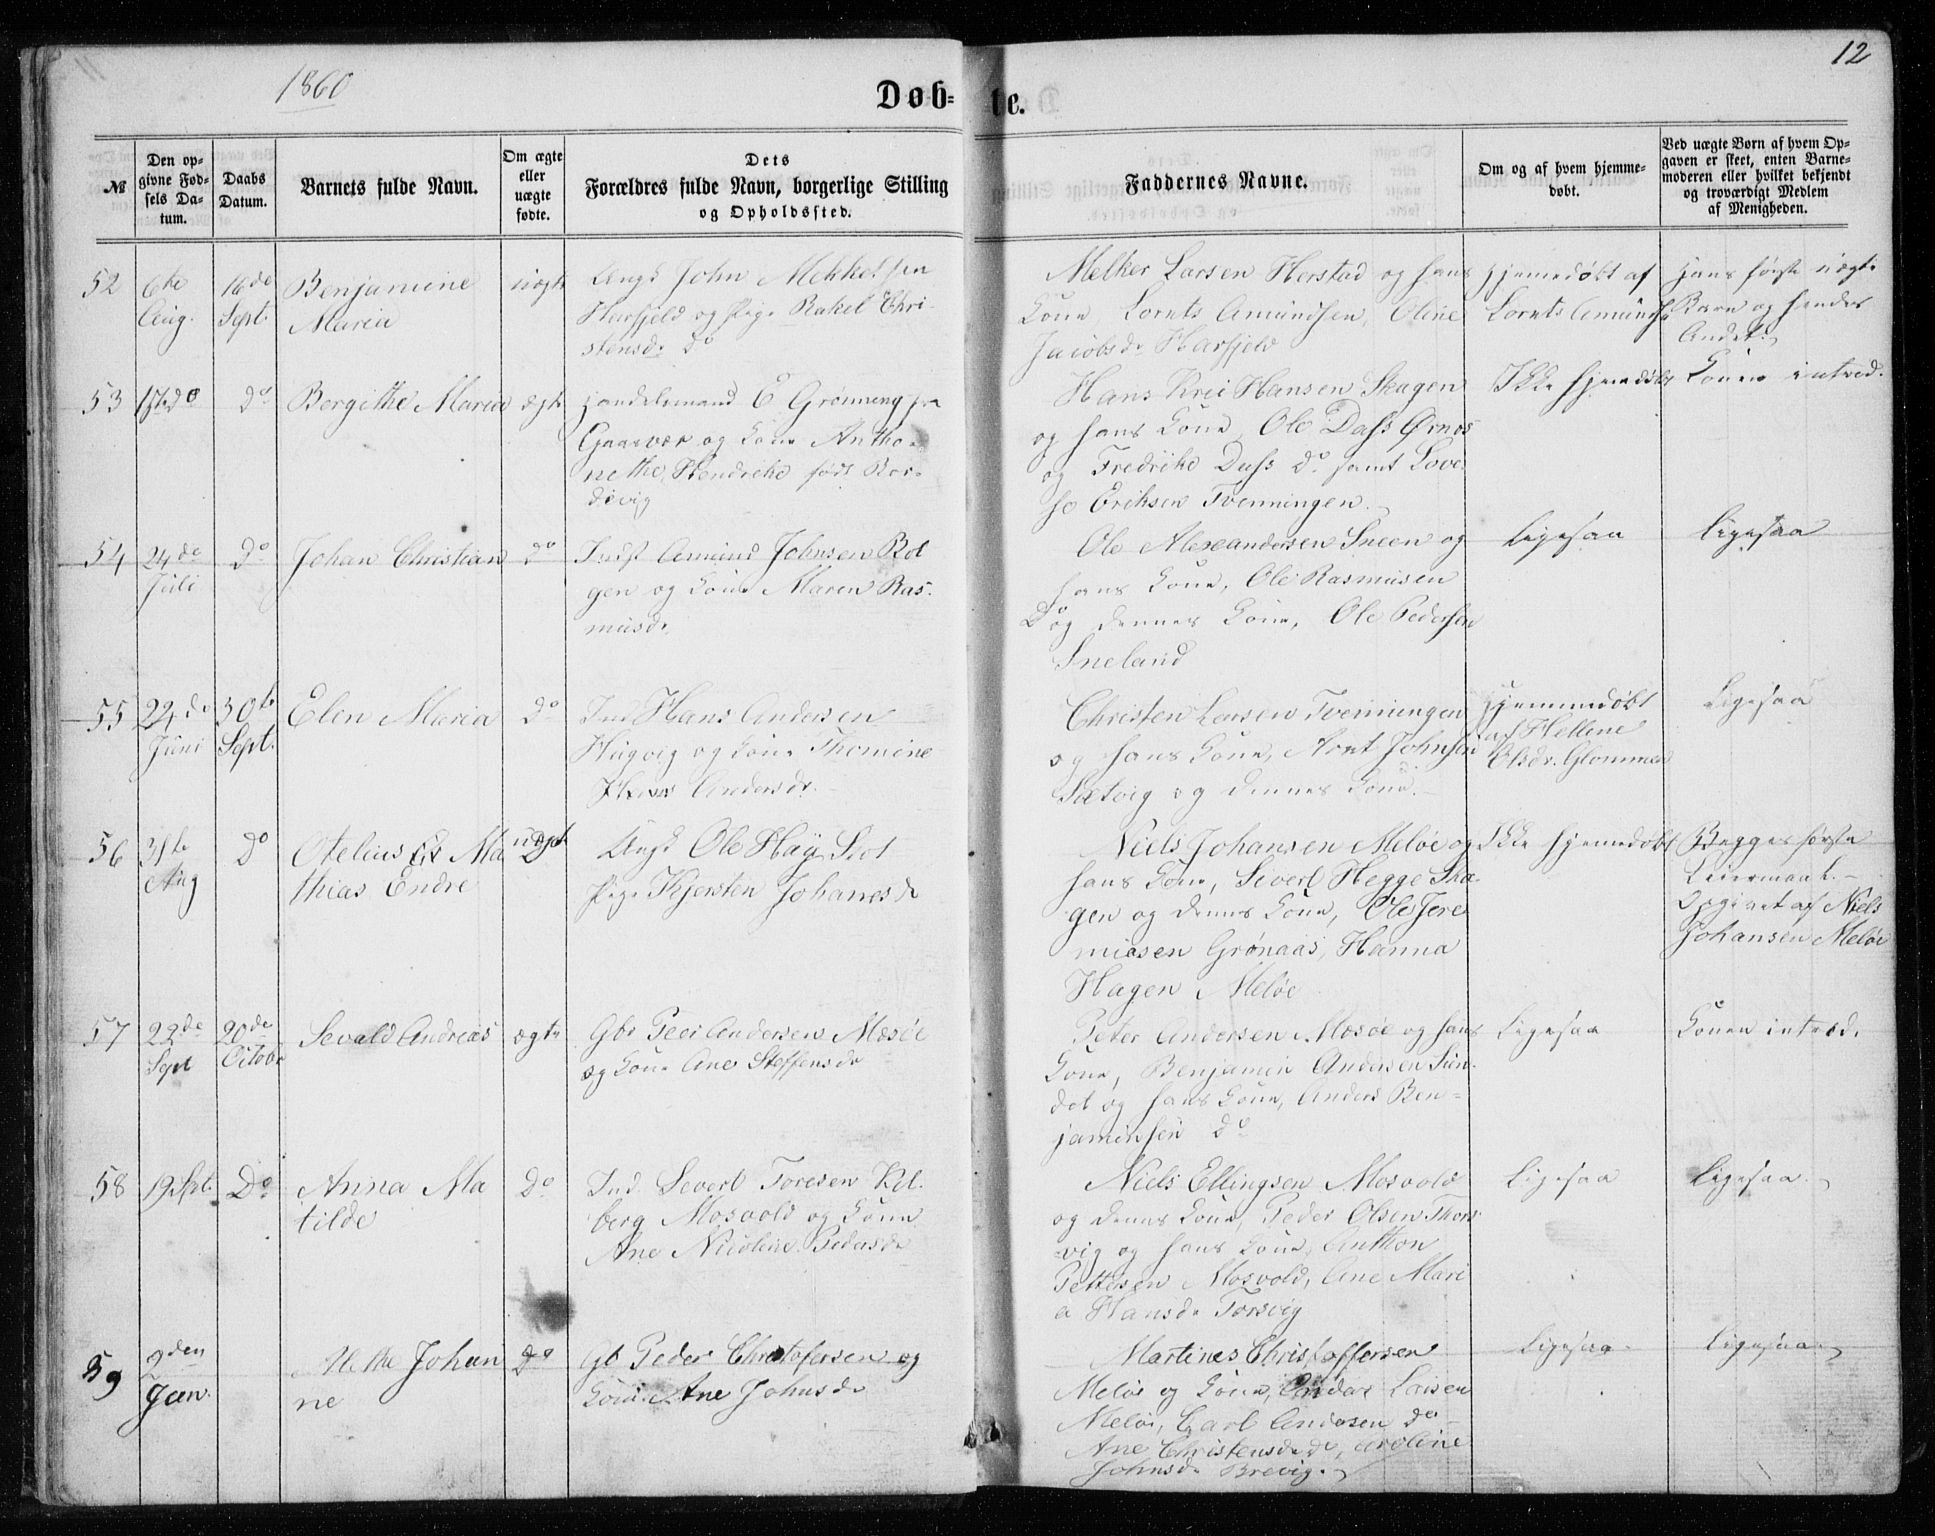 1860
12
Døb-
te.
№
Den op-
givne Fød-
sels Da-
tum.
Daabs
Datum.
Barnets fulde Navn.
Om ægte
eller
uægte
fødte.
Dets
Forældres fulde Navn, borgerlige Stilling
og Opholdssted.
Faddernes Navne.
Om og af hvem hjemme-
døbt.
Ved uægte Børn af hvem Op-
gaven er skeet, enten Barne-
moderen eller hvilket bekjendt
og troværdigt Medlem
af Menigheden.
52
6te
Aug.
16de
Sept.
Benjamine
Maria
uægte
Ungk John Mekkelsen
Harfjeld og Pige Rakel Chri-
stensdr Do
Melker Larsen Herstad og hans
Kone, Lornts Amundsen, Oline
Jacobsdr Harfjeld
Hjemedøbt af
Lornts Amunds
Hans første uægte
Barn og hendes
Andet.
53
17de do
Do
Bergithe Maria
ægte
Handelsmand E Grønning fra
Gaasvær og Kone Antho-
nethe Hendrike født Bor-
divig
Hans Krei Hansen Skagen
og hans Kone, Ole Dass Ørnes
og Fredrike Dass Do samt Love-
se Eriksen Tvenningen
Ikke hjemedøbt
Konen introd.
54
24de
Juli
Do
Johan Christian
Do
Indst Amund Johnsen Bol
gen og Kone Maren Ras-
musdr
Ole Alexandersen Sneen og
hans Kone, Ole Rasmusen
Do og dennes Kone, Ole Pedersen
Sneland
Ligesaa
Ligesaa
55
22de
Juni
30te
Sept.
Elen Maria
Do
Ind Hans Andersen
Høgvig og Kone Thomine
Andersdr.
Christen Larsen Tvenningen
og hans Kone, Arnt Johnsen
Sætvig og dennes Kone.
Hjemmedøbt
af Hellene
Olsdr. Glommen
Ligesaa
56
31te
Aug
Do
Otelius Ma
thias Endre
uægte
Ungk Ole Hag Slot
Pige Kjersten Johanesdr
Niels Johansen Meløe og
hans Kone, Severt Hegge Ska-
gen og dennes Kone, Ole Jere
miasen Grønaas, Hanna
Hagen Meløe
Ikke hjemedøbt
Begges første
Leiermaal.
Opgivet af Niels
Johansen Meløe
57
22de
Sept
20de
October
Sevald Andreas
ægte
Gbr Peer Andersen Mesøe
og Kone Ane Steffensdr
Peter Andersen Mesøe og hans
Kone, Benjamin Andersen Sun-
det og hans Kone, Anders Ben-
jaminsen Do
Ligesaa
Konen introd.
58
19 Spt.
Do
Anna Ma
tilde
Do
Ind. Severt Toresen Kil-
berg Mosvold og Kone
Ane Nicoline Pedersdr
Niels Ellingsen Mosvold
og dennes Kone, Peder Olsen Thors
vig og hans Kone, Anthon
Pettersen Mosvold, Ane Mari
a Hansdr Torsvig
Ligesaa
Ligesaa.
59
2den
Jan.
Methe Johan
ne
Do
Gb Peder Christofersen og
Kone Ane Johnsdr
Martines Christoffersen
Meløe og Kone, Endar Larsen
Meløe, Carl Andersen do
Ane Christensdr do, Caroline
Johnsdr Brevig.
Ligesaa
Ligesaa